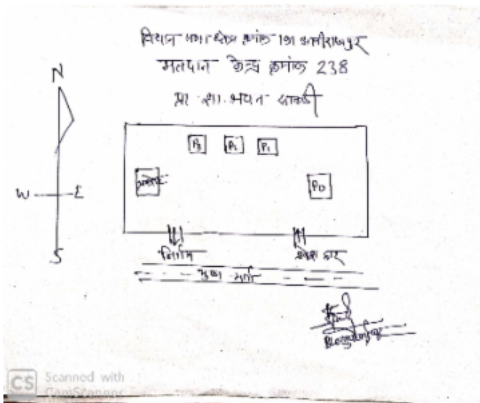 विधान सभा क्षेत्र क्रमांक 191 अलीराजपुर
मतदान केन्द्र क्रमांक 238
प्रा. शा. भवन
N
W E
S
P3 P2 P1
PO
निर्गम प्रवेश द्वार
मुख्य मार्ग
CS Scanned with
CamScanner